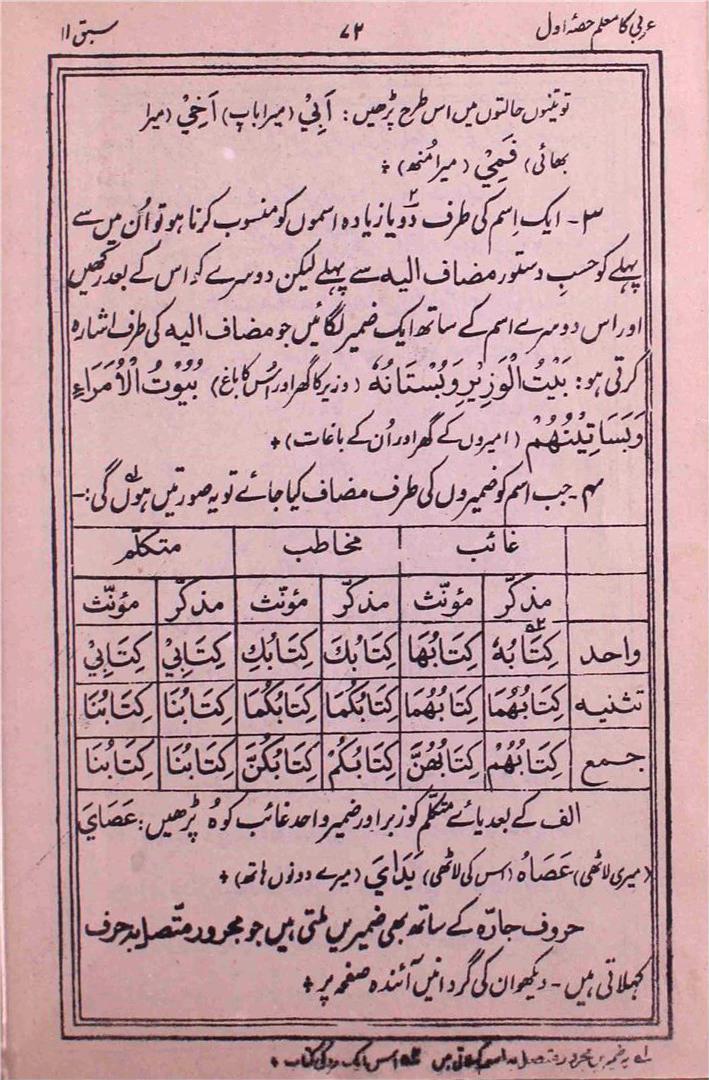 عربی کا معلم حصۂ اول ۷۲ سبق ۱۱
تو تینوں حالتوں میں اس طرح پڑھیں: اَبِيْ (میرا باپ) اَخِيْ (میرا
بھائی) فَمِيْ (میرا مُنھ)+
۳- ایک اِسم کی طرف دَو۲ یا زیادہ اسموں کو منسوب کرنا ہو تو اُن میں سے
پہلے کو حسبِ دستور مضاف الیه سے پہلے لیکن دوسرے کو اس کے بعد رکھیں
اور اس دوسرے اسم کے ساتھ ایک ضمیر لگائیں جو مضاف الیه کی طرف اشارہ
کرتی ہو: بَيْتُ الْوَزِيْرِ وَبُسْتَانُهٗ (وزیر کا گھر اور اُس کا باغ) بُيُوْتُ الْاُمَرَاءِ
وَبَسَاتِيْنُهُمْ (امیروں کے گھر اور اُن کے باغات)+
۴- جب اسم کو ضمیروں کی طرف مضاف کیا جائے تو یہ صورتیں ہوں گی:-
غائب مخاطب متکلّم
مذکّر مؤنّث مذکّر مؤنّث مذکّر مؤنّث
واحد كِتَابُهٗ كِتَابُهَا كِتَابُكَ كِتَابُكِ كِتَابِيْ كِتَابِيْ
تثنیه كِتَابُهُمَا كِتَابُهُمَا كِتَابُكُمَا كِتَابُكُمَا كِتَابُنَا كِتَابُنَا
جمع كِتَابُهُمْ كِتَابُهُنَّ كِتَابُكُمْ كِتَابُكُنَّ كِتَابُنَا كِتَابُنَا
الف کے بعد یائے متکلّم کو زبر اور ضمیر واحد غائب کو ہُ پڑھیں: عَصَايَ
(میری لاٹھی) عَصَاهُ (اس کی لاٹھی) يَدَايَ (میرے دونوں ہاتھ)+
حروف جارّہ کے ساتھ بھی ضمیریں ملتی ہیں جو مجرور متّصل بہ حرف
کہلاتی ہیں- دیکھو ان کی گردانیں آئندہ صفحہ پر+
لہ یہ ضمیریں مجرور متصل بہ اسم کہلاتی ہیں ۲ہ اس ایک مرد کی کتاب+